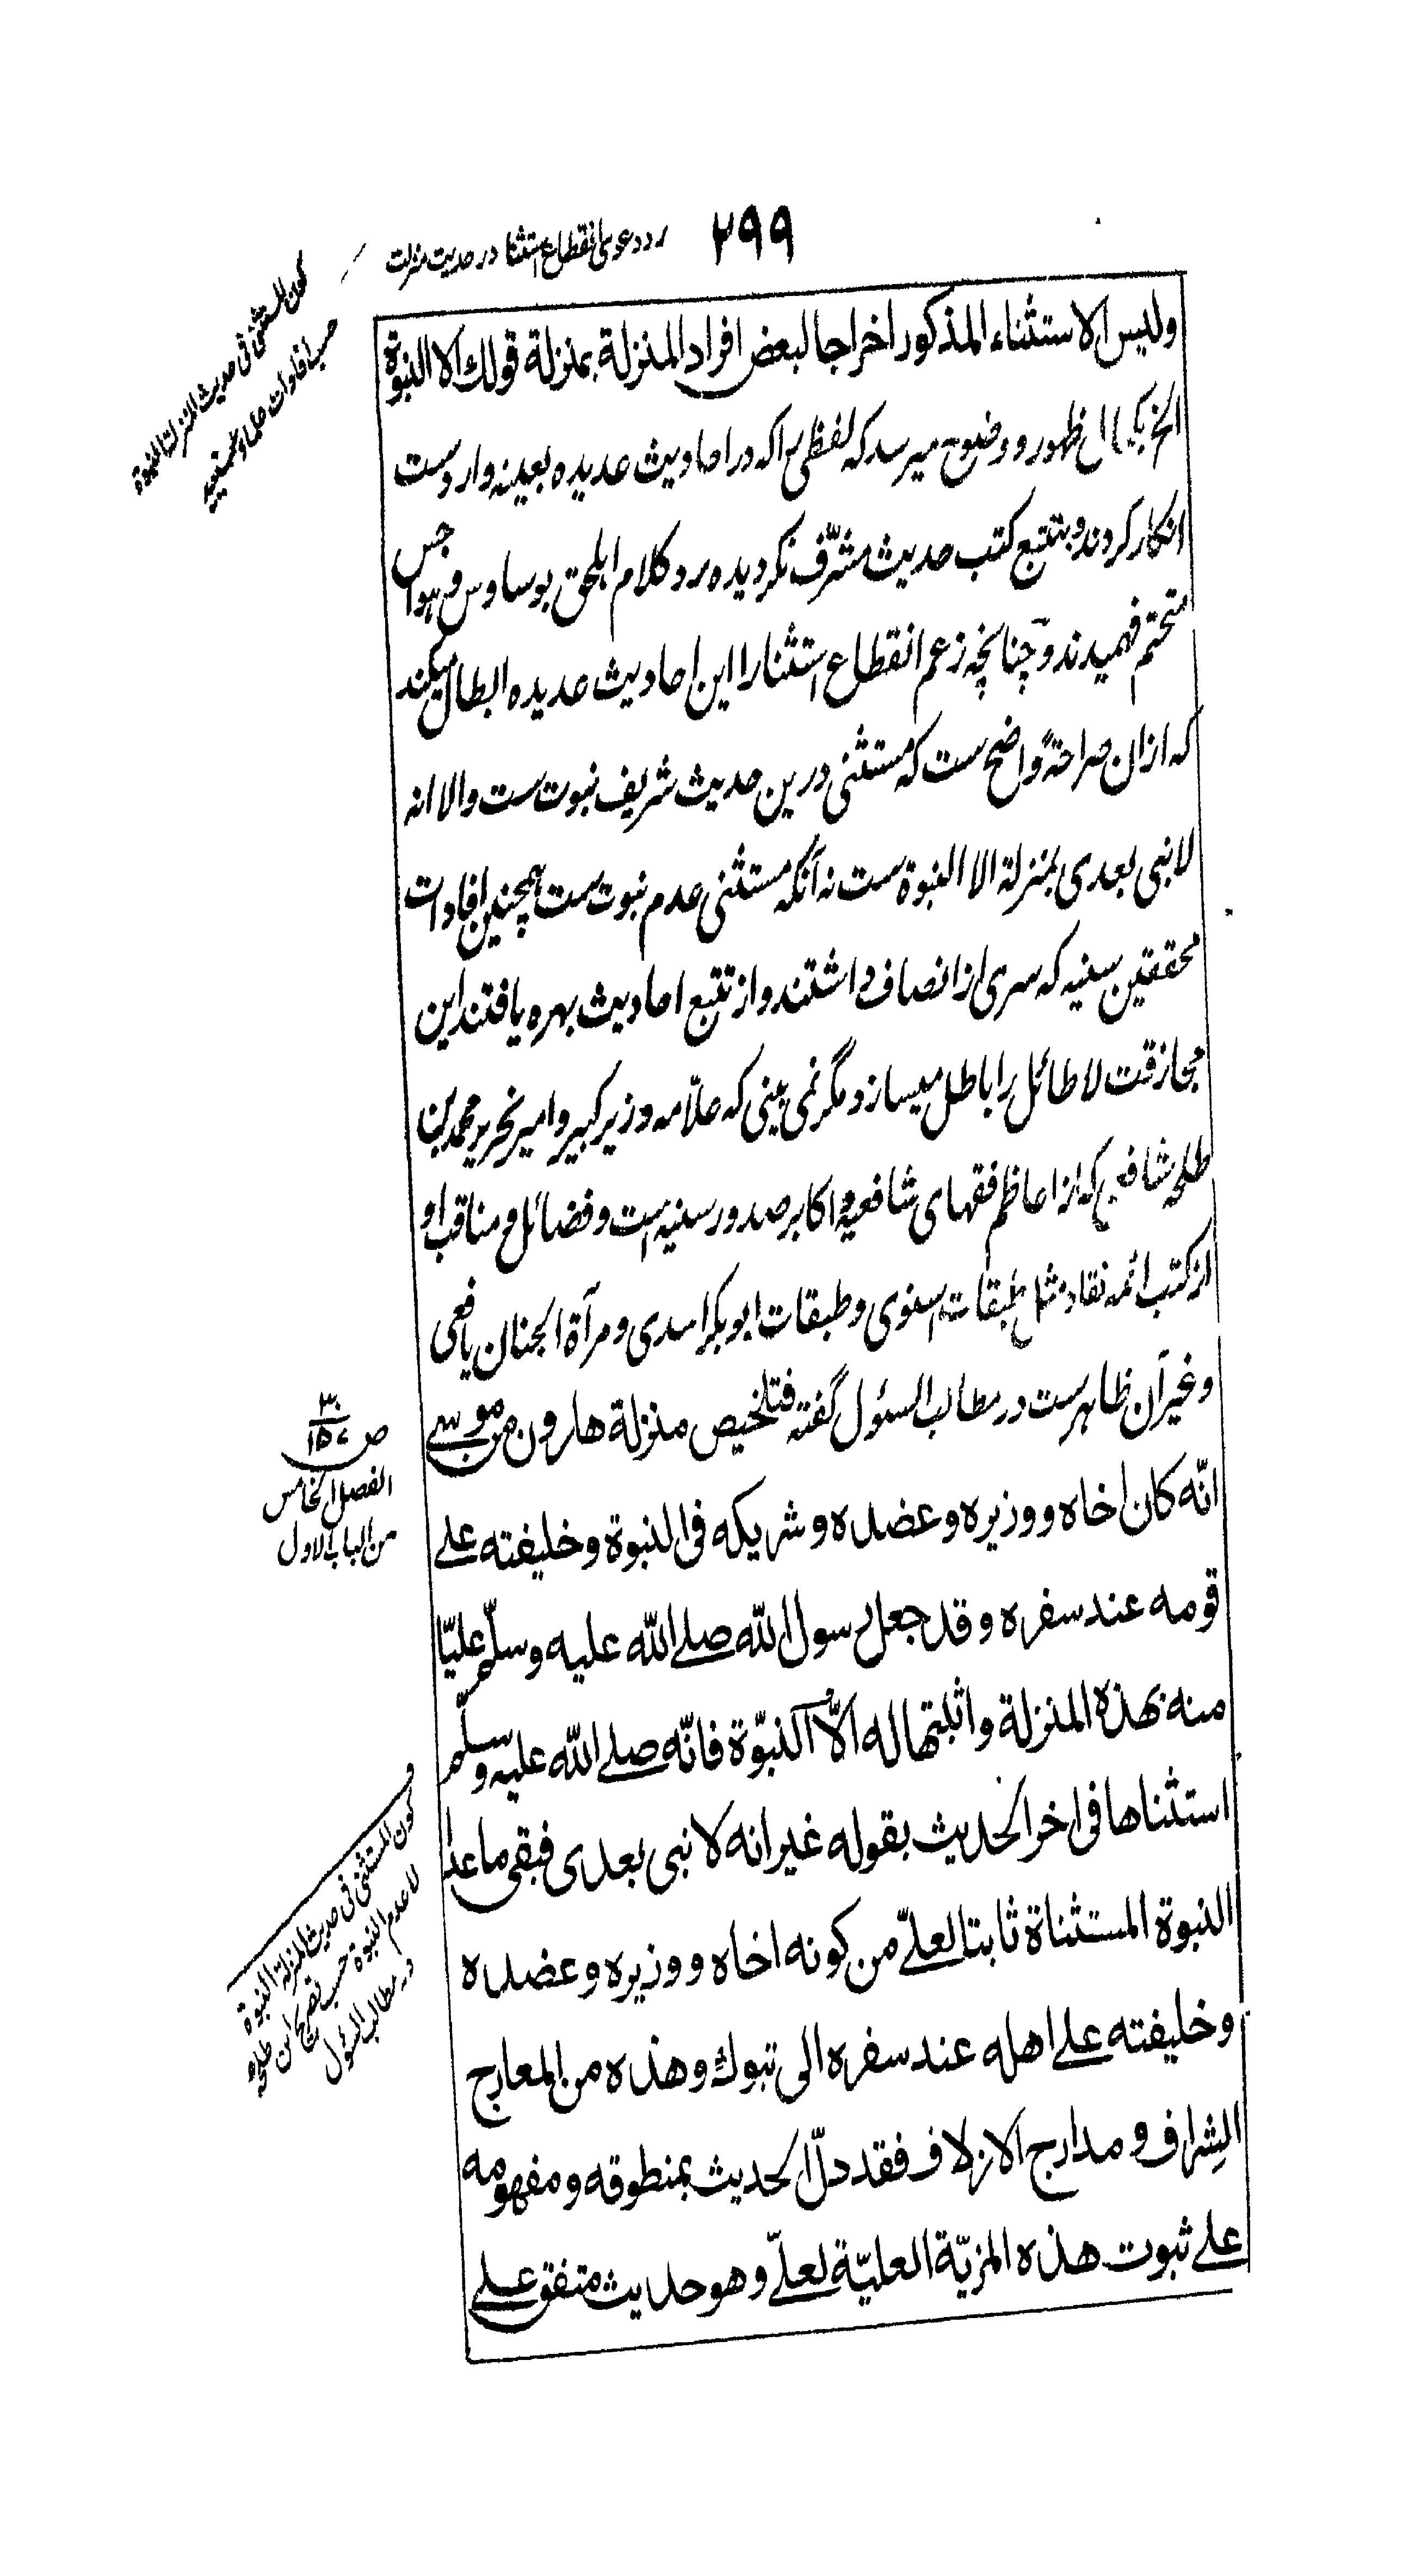 ۲۹۹
رد دعوی انقطاع استثنا در حدیث منزلت
کون المستثنی فی حدیث المنزلة النبوة
حسب افادات علماء سنیه
ولیس الاستثناء المذکور اخراجا لبعض افراد المنزلة بمنزلة قولك الا النبوة
الخ بکمال ظهور و وضوح میرسد که لفظی را که در احادیث عدیده بعینه وارد ست
انکار کردند و بتتبع کتب حدیث مشرّف نگردیده رد کلام اهلحق بوساوس و هواجس
متحتم فهمیدند و چنانچه زعم انقطاع استثنا را این احادیث عدیده ابطال میکند
که ازان صراحةً واضح ست که مستثنی درین حدیث شریف نبوت ست والا انه
لا نبی بعدی بمنزلة الا النبوة ست نه آنکه مستثنی عدم نبوت ست همچنین افادات
محققین سنیه که سری از انصاف داشتند و از تتبع احادیث بهره یافتند این
مجازفت لا طائل را باطل میسازد مگر نمی بینی که علّامه وزیر کبیر و امیر نحریر محمد بن
طلحه شافعی که از اعاظم فقهای شافعیه و اکابر صدور سنیه است و فضائل و مناقب او
از کتب ائمه نقاد مثل طبقات اسنوی و طبقات ابوبکر اسدی و مرآة الجنان یافعی
و غیر آن ظاهر ست در مطالب السئول گفته فتلخیص منزلة هارون من موسی
انّه کان اخاه و وزیره و عضده و شریکه فی النبوة و خلیفته علی
قومه عند سفره و قد جعل رسول الله صلی الله علیه وسلّم علیّا
منه بهذه المنزلة و اثبتها له الّا النبوّة فانّه صلی الله علیه وسلم
استثناها فی اخر الحدیث بقوله غیر انه لا نبی بعدی فبقی ما عدا
النبوة المستثناة ثابتا لعلیّ من کونه اخاه و وزیره و عضده
و خلیفته علی اهله عند سفره الی تبوك و هذه من المعارج
الشراف و مدارج الازلاف فقد دلّ الحدیث بمنطوقه و مفهومه
علی ثبوت هذه المزیّة العلیّة لعلیّ و هو حدیث متفق علی
ص
الفصل الخامس
من الباب الاول
کون المستثنی فی حدیث المنزلة النبوة
لا عدم النبوة حسب تصریح ابن طلحة
در مطالب السئول